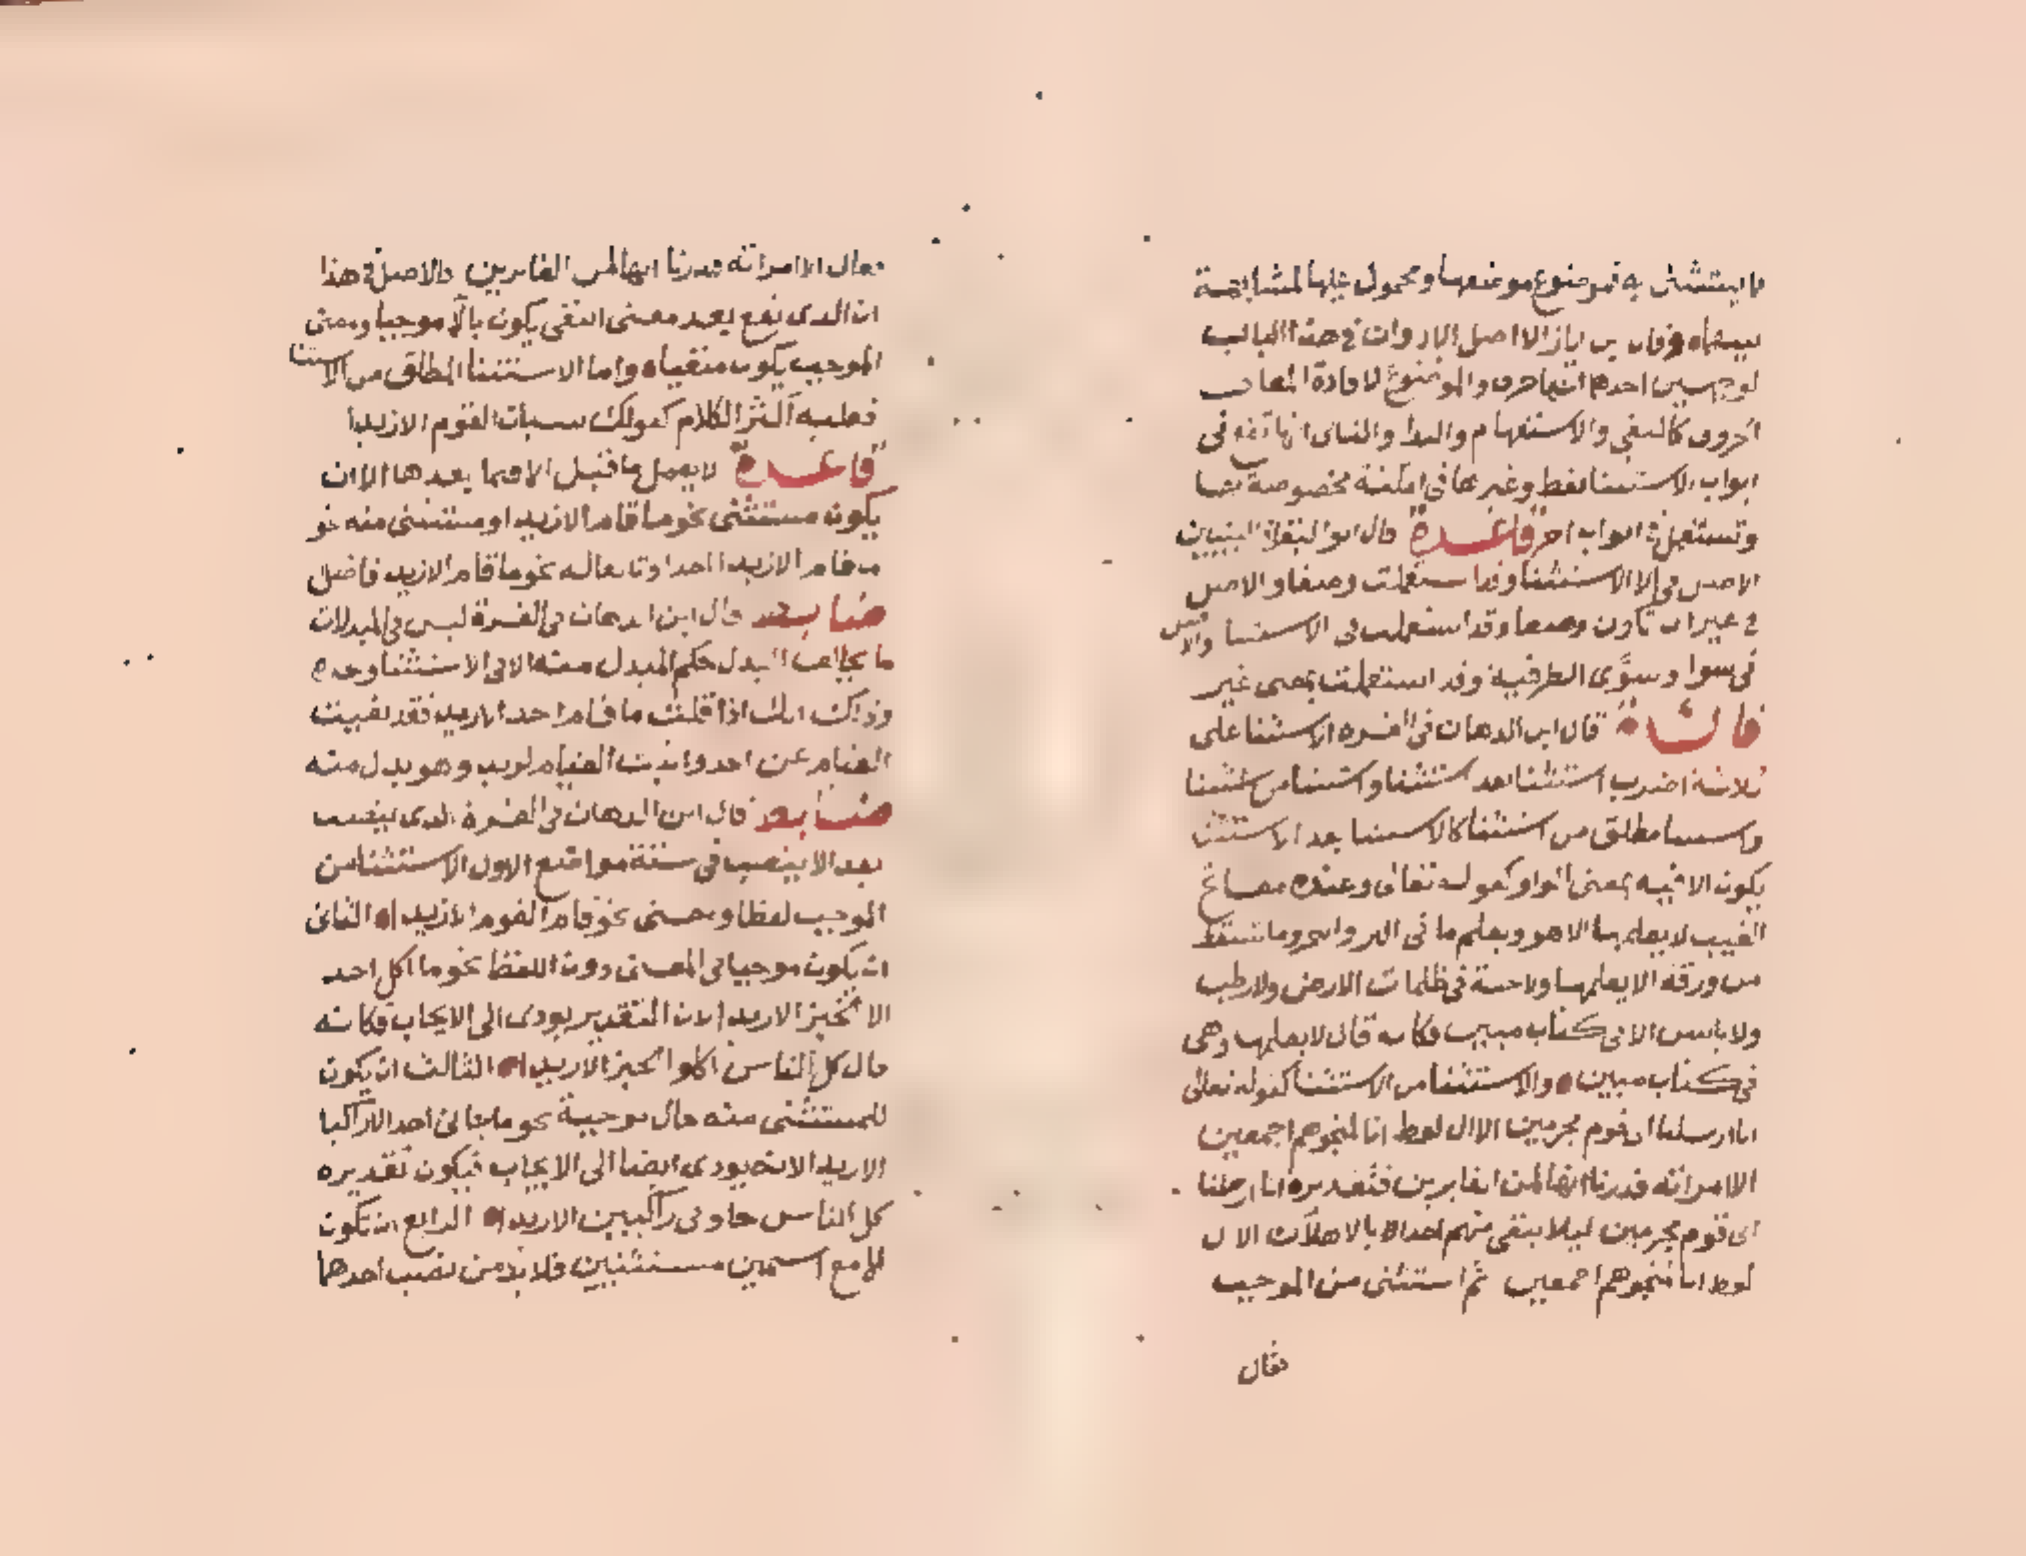 ما يستثنى به فموضوع موضعها ومحمول عليها لمشابهة
بينهما وقال ابن اياز الا اصل الادوات في هذا الباب
لوجهين احدهما انها حرف والموضوع لافادة المعاني
الحروف كالنفي والاستفهام والندا والثاني انها تقع في
ابواب الاستثنا فقط وغيرها في امكنة مخصوصة بها
وتستعمل في ابواب اخر قاعدة قال ابو البقا في التبيين
الاصل في الا الاستثنا وقد استعملت وصفا والاصل
في غير ان تكون وصفا وقد استعملت في الاستثنا والاصل
في سوا وسوى الظرفية وقد استعملت بمعنى غير
فائدة قال ابن الدهان في الغرة الاستثنا على
ثلاثة اضرب استثنا بعد استثنا واستثنا من استثنا
واستثنا مطلق من استثنا فالاستثنا بعد الاستثنا
يكون الا فيه بمعنى الواو كقوله تعالى وعنده مفاتح
الغيب لا يعلمها الا هو ويعلم ما في البر والبحر وما تسقط
من ورقة الا يعلمها ولا حبة في ظلمات الارض ولا رطب
ولا يابس الا في كتاب مبين فكانه قال لا يعلمها وهي
في كتاب مبين والاستثنا من الاستثنا كقوله تعالى
انا ارسلنا الى قوم مجرمين الا ال لوط انا لمنجوهم اجمعين
الا امراته قدرنا انها لمن الغابرين فتقديره انا ارسلنا
الى قوم مجرمين ليلا يبقى منهم احدا بالاهلاك الا ال
لوط انا لمنجوهم اجمعين ثم استثنى من الموجب
فقال
فقال الا امراته قدرنا انها لمن الغابرين والاصل في هذا
ان الذي يقع بعد معنى النفي يكون بالا موجبا ومعنى
الموجب يكون منفيا واما الاستثنا المطلق من الاستثنا
فعليه اكثر الكلام كقولك سبات القوم الا زيدا
قاعدة لا يعمل ما قبل الا فيما بعدها الا ان
يكون مستثنى نحو ما قام الا زيد او مستثنى منه نحو
ما قام الا زيدا احد او تابعا له نحو ما قام الا زيد فاضل
ضابط قال ابن الدهان في الغرة ليس في المبدلات
ما يخالف البدل حكم المبدل منه الا في الاستثنا وحده
وذلك انك اذا قلت ما قام احد الا زيد فقد نفيت
القيام عن احد واثبت القيام لزيد وهو بدل منه
ضابط قال ابن الدهان في الغرة الذي ينصب
بعد الا ينصب في ستة مواضع الاول الاستثنا من
الموجب لفظا ومعنى نحو قام القوم الا زيدا الثاني
ان يكون موجبا في المعنى دون اللفظ نحو ما اكل احد
الا الخبز الا زيدا لان التقدير يودي الى الايجاب فكانه
قال كل الناس اكلوا الخبز الا زيدا الثالث ان يكون
للمستثنى منه حال موجبة نحو ما جاني احد الا راكبا
الا زيدا لانه يودي ايضا الى الايجاب فيكون تقديره
كل الناس جاوني راكبين الا زيدا الرابع ان تكون
الا مع اسمين مستثنيين فلا بد من نصب احدهما